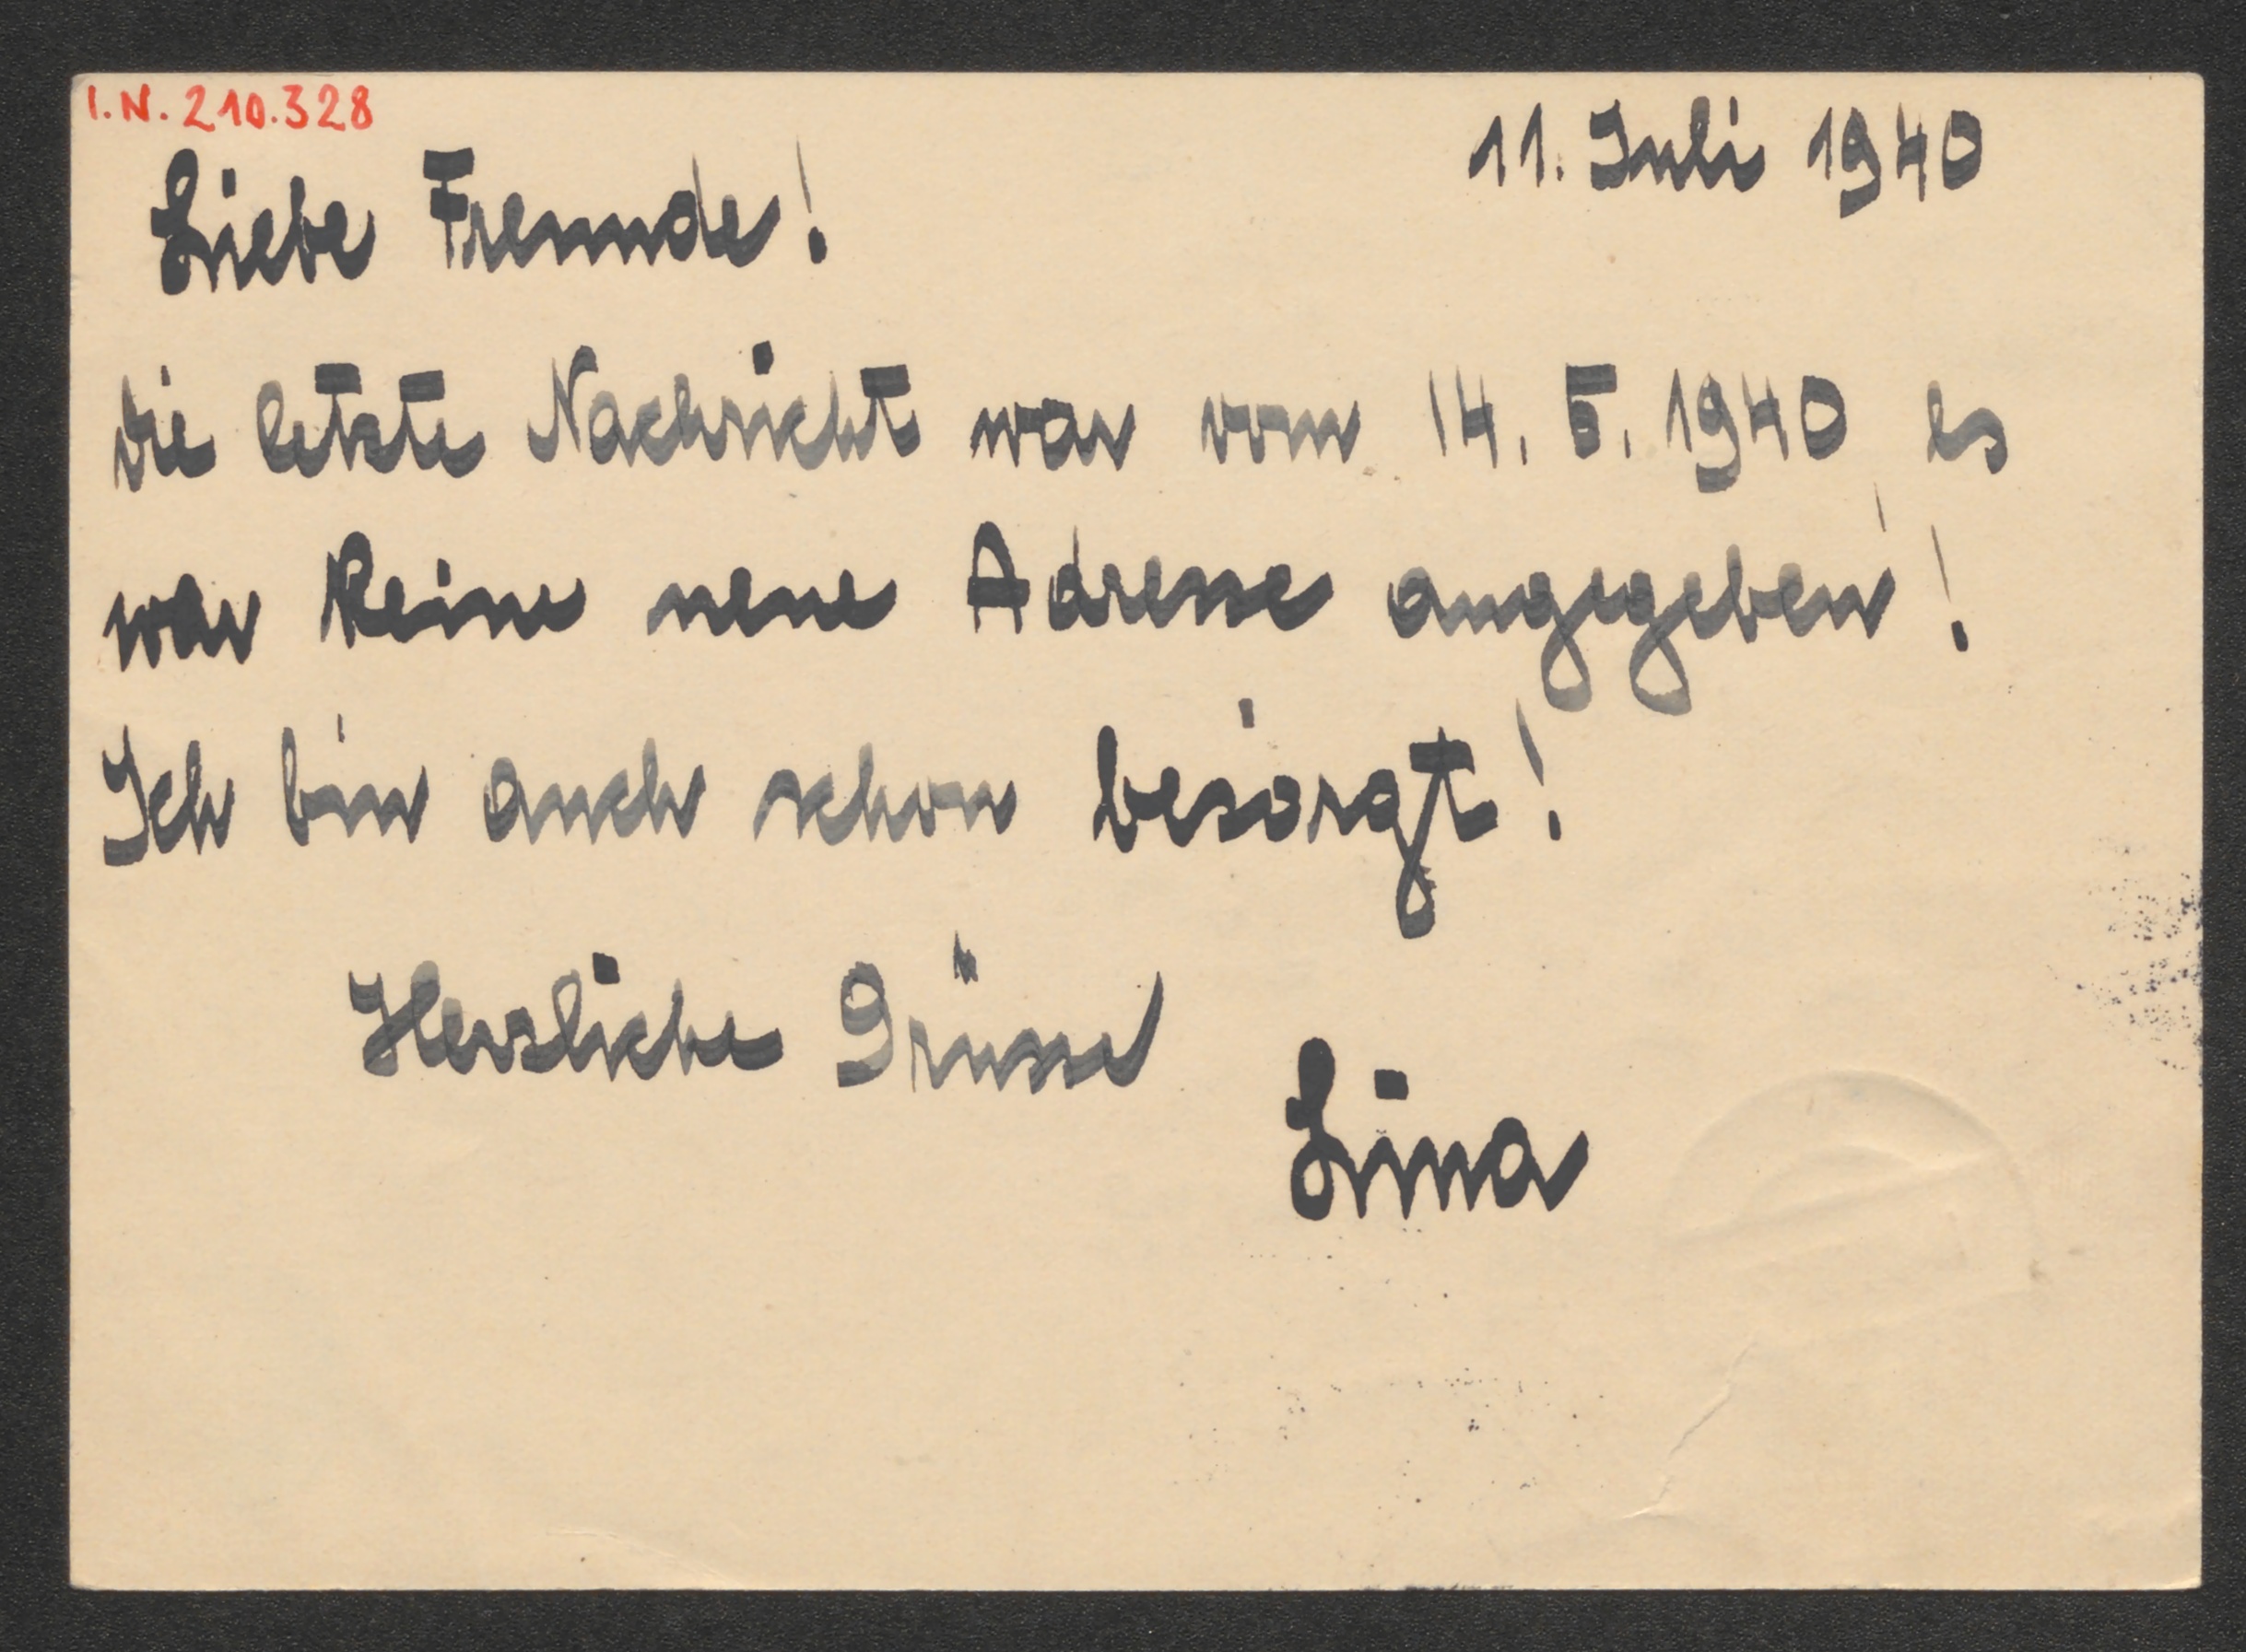 I.N. 210.328
11. Juli 1940
Liebe Freunde!
die letzte Nachricht war vom 14. 5. 1940 es
war keine neue Adresse angegeben!
Ich bin auch schon besorgt!
Herzliche Grüsse
Lina